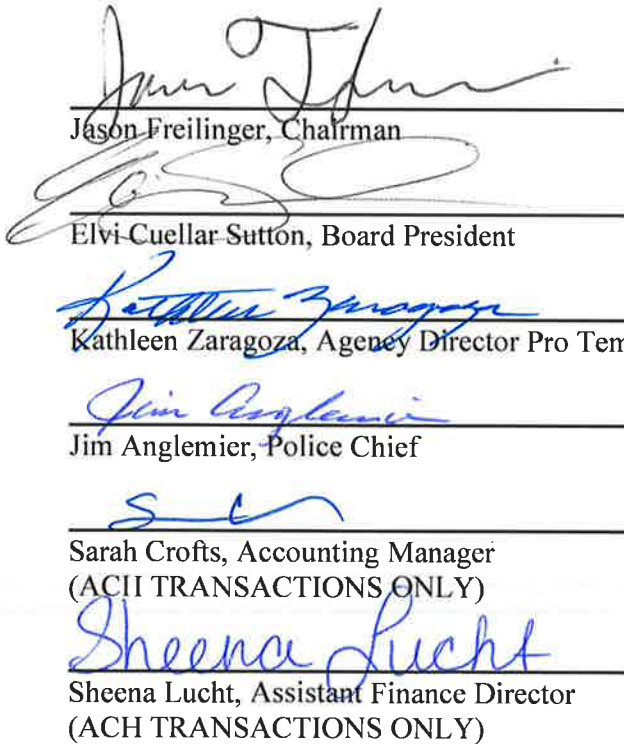 Jason Freilinger, Chairman
Elvi Cuellar Sutton, Board President
Kathleen Zaragoza
Kathleen Zaragoza, Agency Director Pro Tem
Jim Anglemier
Jim Anglemier, Police Chief
Sarah Crofts, Accounting Manager
(ACH TRANSACTIONS ONLY)
Sheena Lucht
Sheena Lucht, Assistant Finance Director
(ACH TRANSACTIONS ONLY)